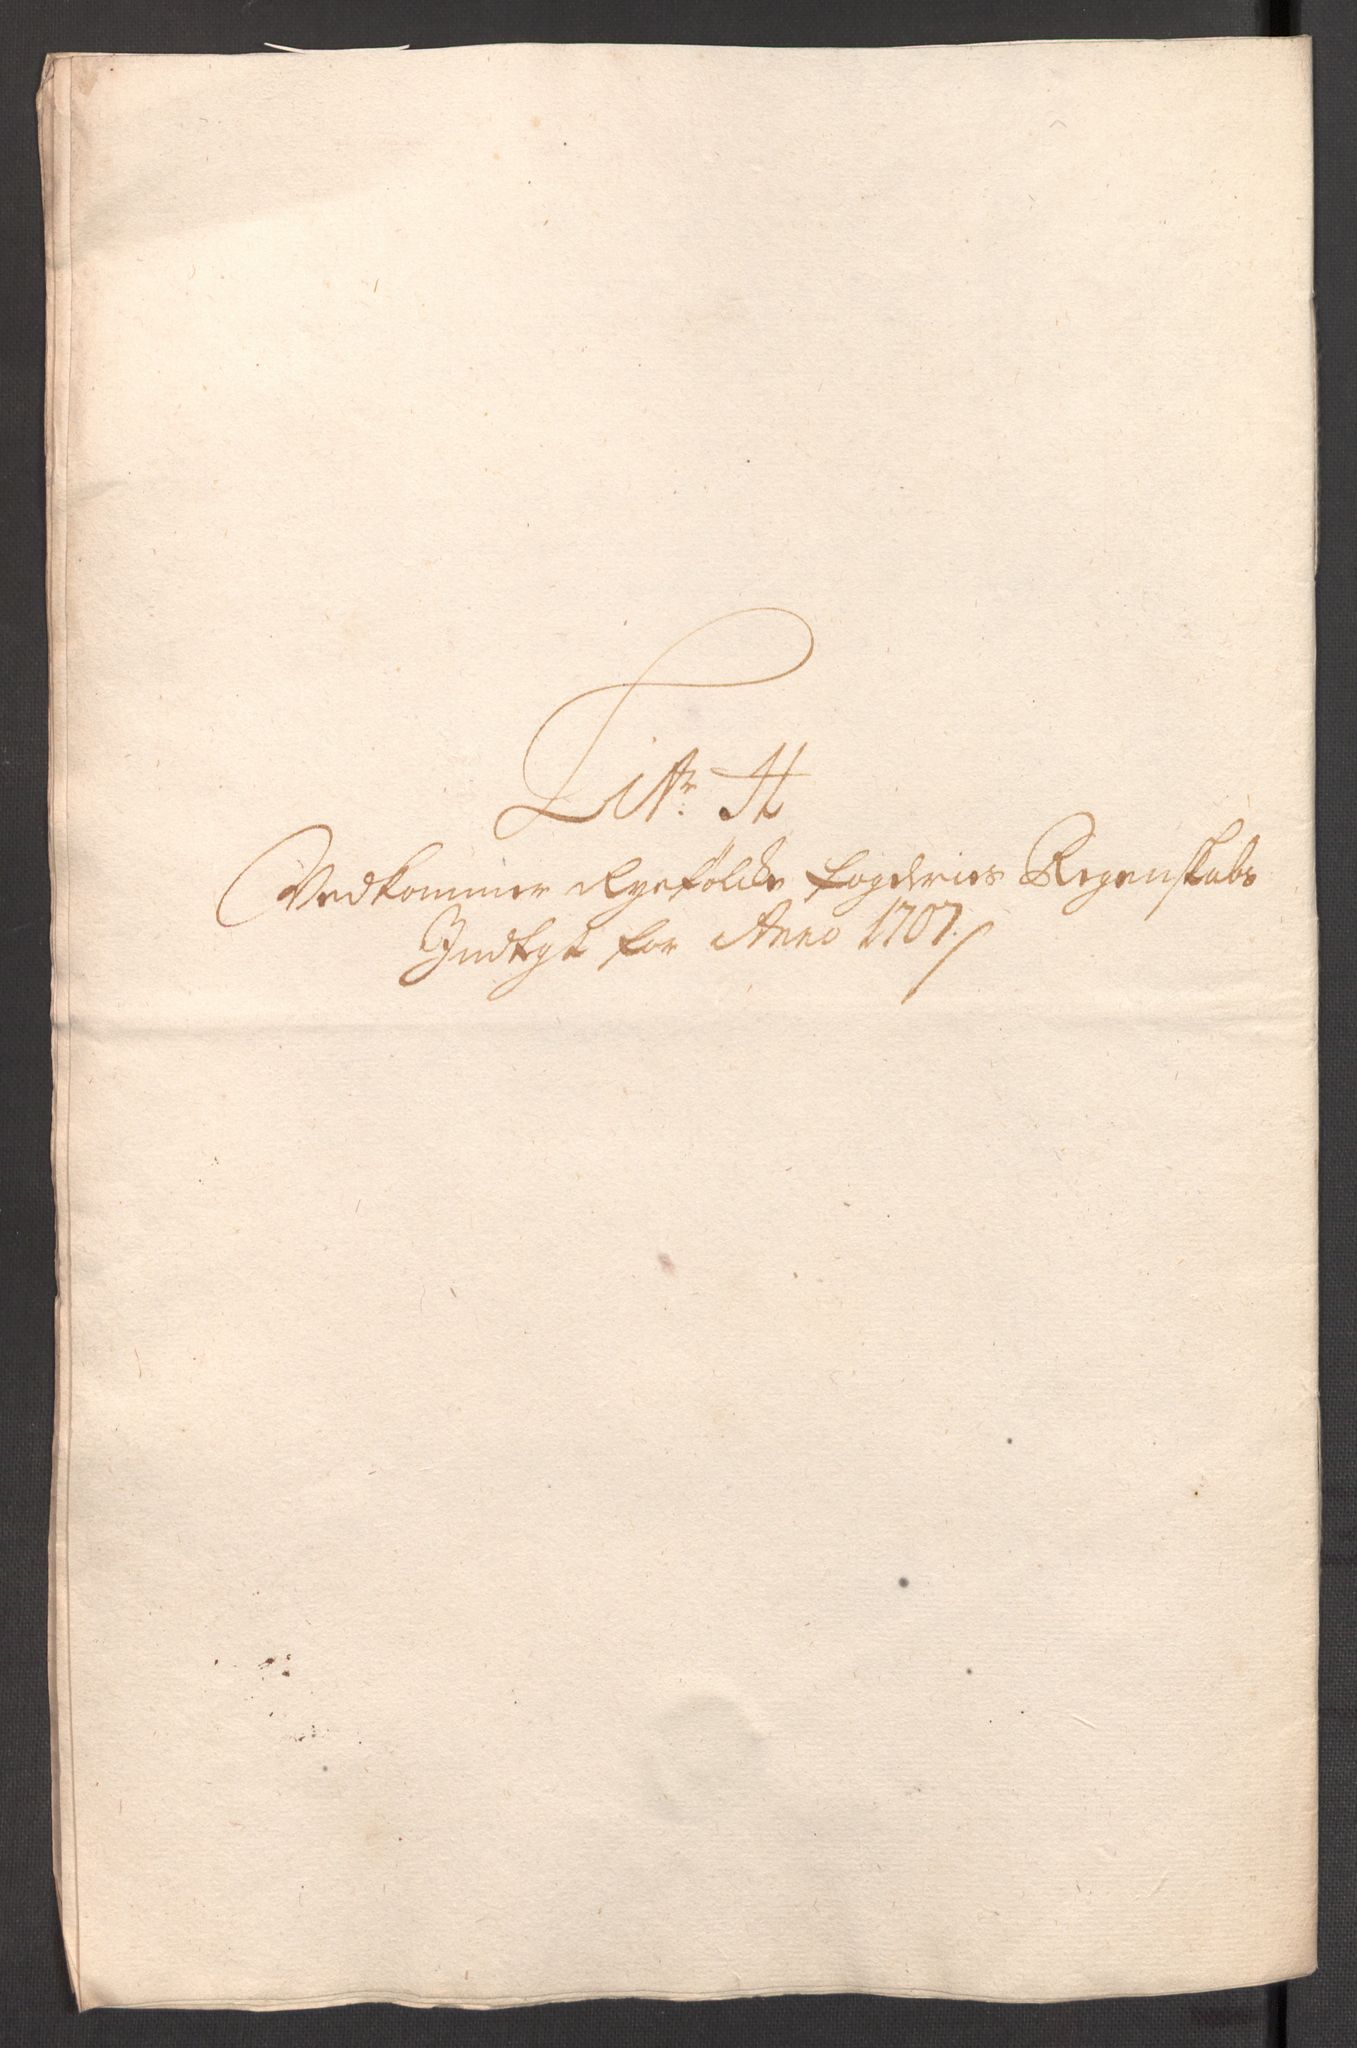 Litr. H
Vedkommer Ryefölcke fogderies Regenskabs
Indtegt for Anno 1707.